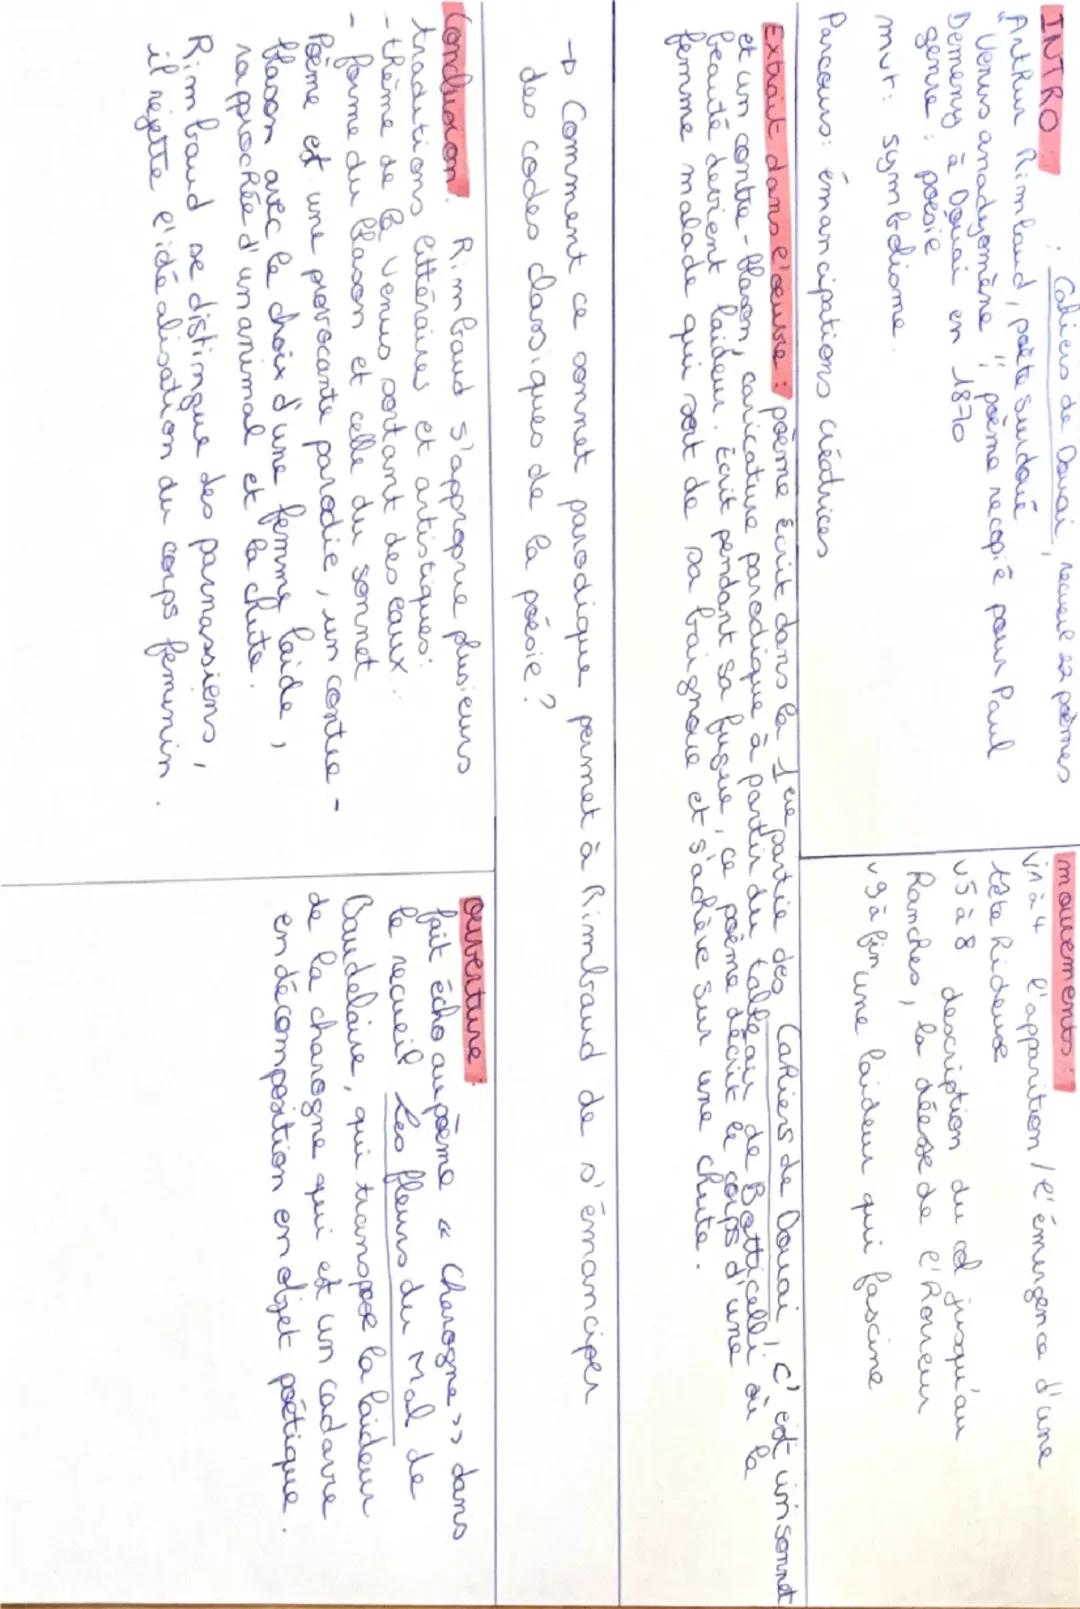 INTRO : Cahiers de Douai, recueil 22 poèmes
Arthur Rimbaud, poète surdoué
"Venus anadyomène", poème recopié pour Paul
Demeny à Douai en 1870
genre : poésie
mvt : symbolisme.
Parcours : émancipations créatrices
mouvements :
v1 à 4 l'apparition / l'émergence d'une
tête hideuse
v5 à 8 description du col jusqu'au
hanches, la déesse de l'horreur
v9 à fin une laideur qui fascine
Extrait dans l'œuvre : poème écrit dans la 1ère partie des Cahiers de Douai, c'est un sonnet
et un contre-blason, caricature parodique à partir du tableau de Botticelli où la
beauté devient laideur. Écrit pendant sa fugue, ce poème décrit le corps d'une
femme malade qui sort de sa baignoire et s'achève sur une chute.
→ Comment ce sonnet parodique permet à Rimbaud de s'émanciper
des codes classiques de la poésie ?
Conclusion. Rimbaud s'approprie plusieurs
traditions littéraires et artistiques :
- thème de la Venus sortant des eaux.
- forme du blason et celle du sonnet
Poème est une provocante parodie, un contre-
blason avec le choix d'une femme laide,
rapprochée d'un animal et la chute.
Rimbaud se distingue des parnassiens,
il rejette l'idéalisation du corps féminin.
ouverture :
fait écho au poème « Charogne » dans
le recueil Les fleurs du Mal de
Baudelaire, qui transpose la laideur
de la charogne qui est un cadavre
en décomposition en objet poétique.